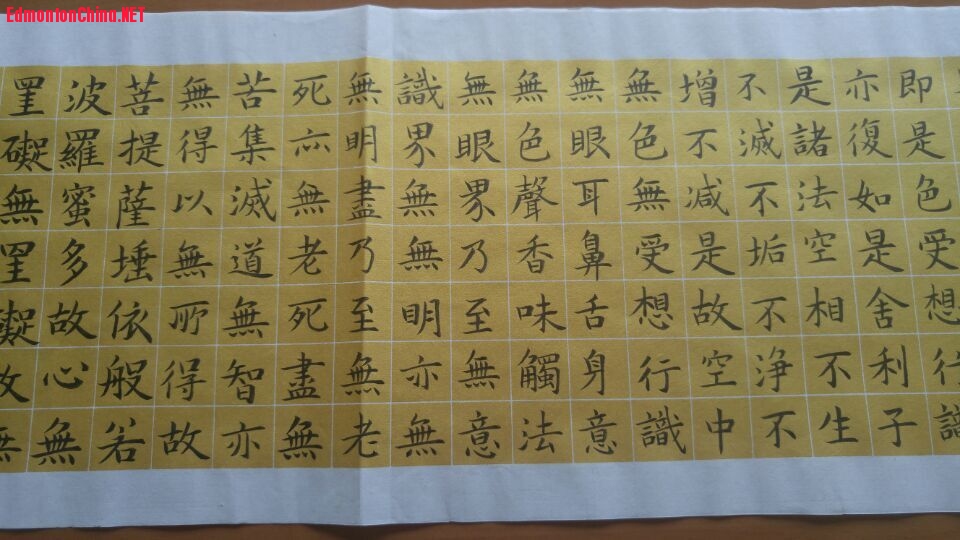 即是色受想行識
亦復如是舍利子
是諸法空相不生
不滅不垢不淨不
增不減是故空中
無色無受想行識
無眼耳鼻舌身意
無色聲香味觸法
無眼界乃至無意
識界無無明亦無
無明盡乃至無老
死亦無老死盡無
苦集滅道無智亦
無得以無所得故
菩提薩埵依般若
波羅蜜多故心無
罣礙無罣礙故無
EdmontonChina.NET